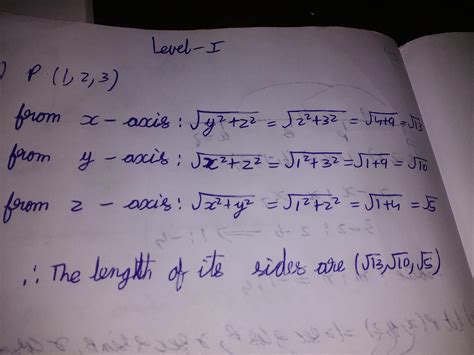 Level-I
) P (1,2,3)
from x - axis : √y²+z² = √2²+3² = √4+9 = √13
from y - axis : √x²+z² = √1²+3² = √1+9 = √10
from z - axis : √x²+y² = √1²+2² = √1+4 = √5
∴ The length of its sides are (√13,√10,√5)